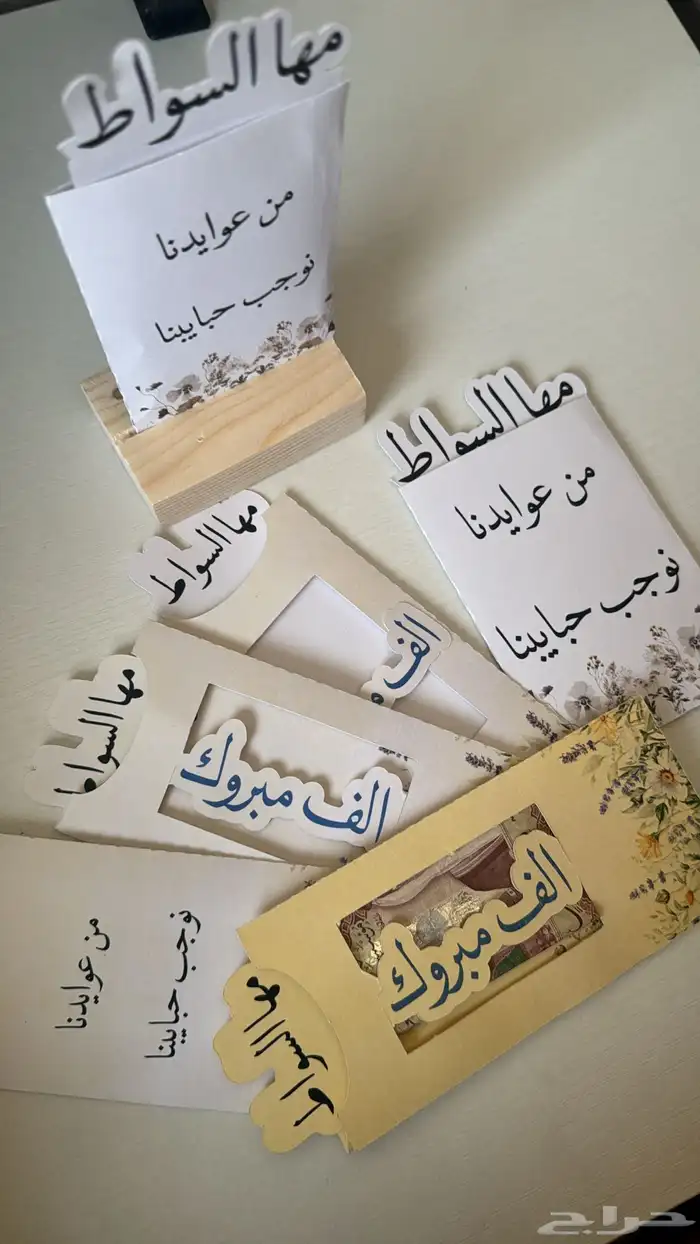 مها السواط
من عوايدنا
نوجب حبايبنا
مها السواط
من عوايدنا
نوجب حبايبنا
مها السواط
الف م
مها السواط
الف مبروك
من عوايدنا
نوجب حبايبنا
الف مبروك
مها السواط
حراج